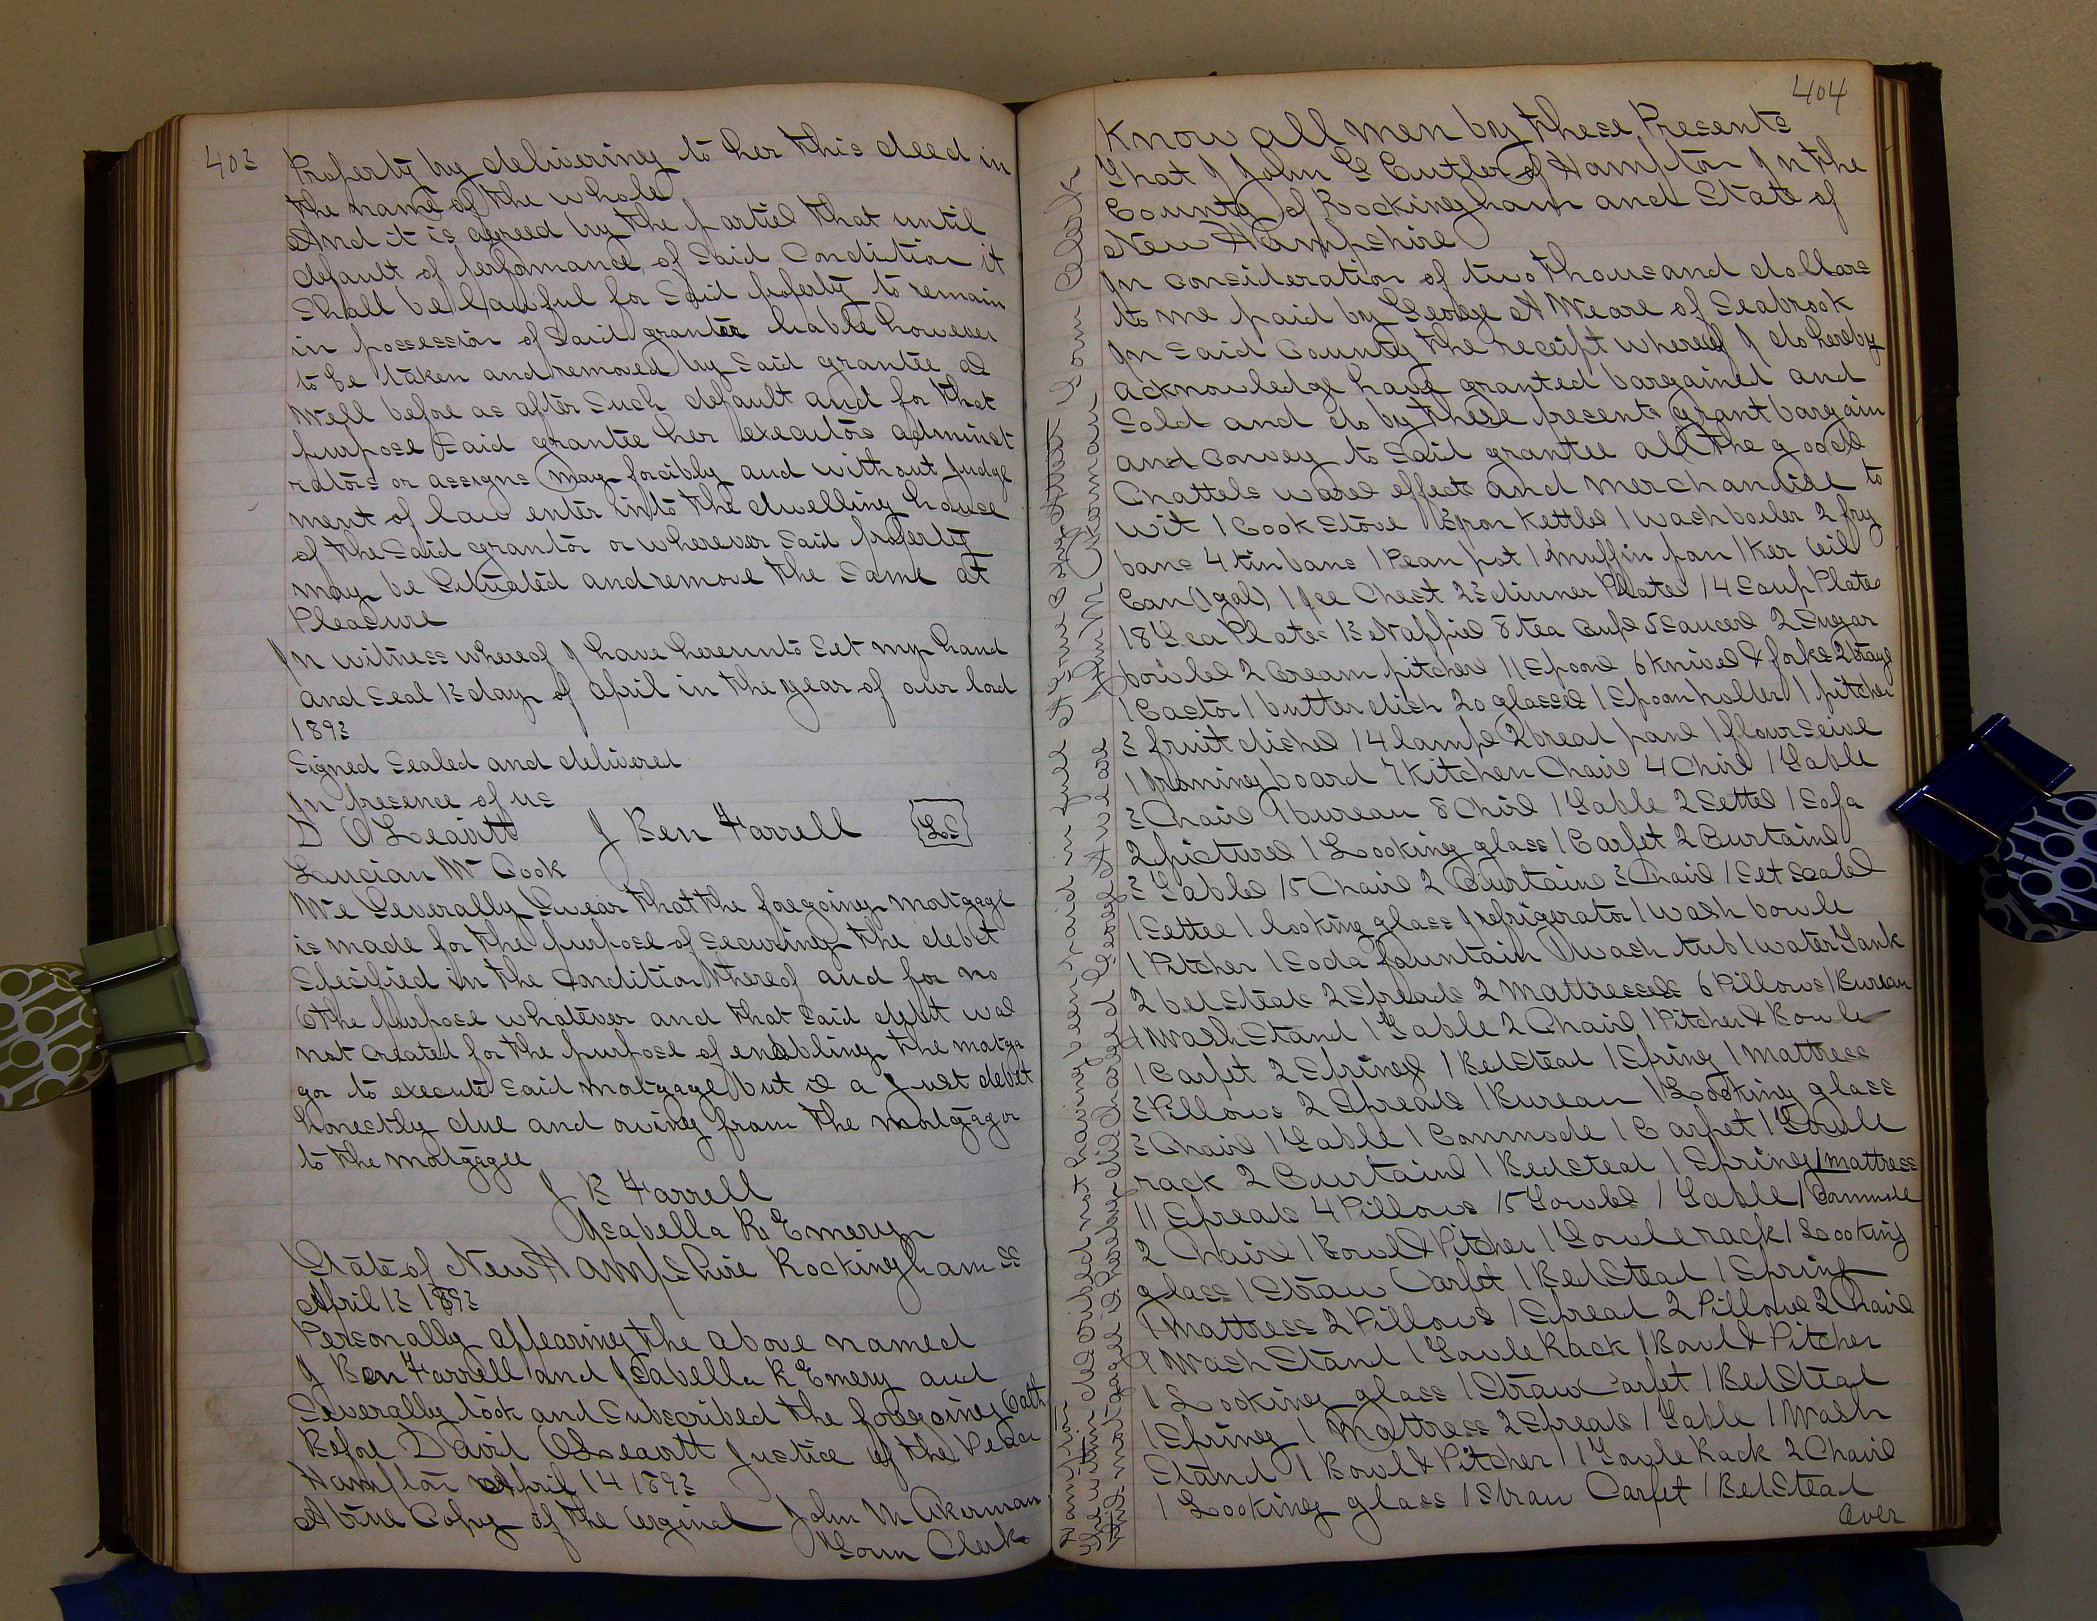 403
Property by delivering to her this deed in
the name of the whole
And it is agreed by the partiel that until
default of performance of Said Condiction it
Shall be lawful for Said property to remain
in possession of Said granter liable however
to be taken and removed by Said grantee as
Well before as after Such default and for that
purpose Said grantee her executors administ
rators or assigns may forcibly and without Judge
ment of law enter into the dwelling house
of the Said grantor or wherever Said property
may be Situated and remove the Same at
Pleasure
In witness whereof I have hereunto Set my hand
and Seal 13 day of April in the year of our lord
1893
Signed Sealed and delivered
In presence of us
D O Leavitt J Ben Farrell LS
Lucian W Cook
We Severally Swear that the foregoing mortgage
is made for the purpose of securing the debt
Specified in the Condiction thereof and for no
Othe purpose whatever and that Said debt was
not created for the purpose of enabling the motga
gor to execute Said mortgage but is a Just debt
honestly due and owing from the mortgagor
to the mortgagee
J B Farrell
Isabella R Emery
State of New Hampshire Rockingham SS
April 13 1893
Personally appearing the above named
J Ben Farrell and Isabella R Emery and
Severally took and Subscribed the foregoing Oath
Before David O Leavitt Justice of the Peace
Hampton April 14 1893
A true Copy of the orginal John M Akerman
Town Clerk
404
Know all men by these Presents
That I John G Cutler of Hampton In the
County of Rockingham and State of
New Hampshire
In consideration of two thousand dollars
to me paid by George A Weare of Seabrook
In Said County the receipt whereof I do hereby
acknowledge have granted bargained and
Sold and do by these presents grant bargain
and Convey to Said grantee all the goods
Chattels wares effects and merchandise to
wit 1 Cook Stove 3 iron Kettles 1 wash boiler 2 fry
bans 4 tin bans 1 Pean pot 1 muffin pan 1 Ker oil
Can (1 gal) 1 Ice Chest 23 dinner Plates 14 Soup Plates
18 Tea Plates 13 Nappies 8 tea Cups 5 Saucers 2 Sugar
bowles 2 Cream pitchers 11 Spoons 6 knives & forks 2 trays
1 Castor 1 butter dish 20 glasses 1 Spoon holder 1 pitcher
3 fruit dishes 14 lamps 2 bread pans 1 flour Seive
1 Ironing board 7 Kitchen Chairs 4 Chirs 1 Table
3 Chairs 1 bureau 8 Chirs 1 Table 2 Settes 1 Sofa
2 pictures 1 Looking glass 1 Carpet 2 Curtains
3 Tables 15 Chairs 2 Curtains 3 Chairs 1 Set Scales
1 Settee 1 looking glass 1 refrigerator 1 wash bowle
1 Pitcher 1 Soda fountain 1 wash tub 1 water Tank
2 bedsteads 2 Spreads 2 Mattresses 6 Pillows 1 Bureau
1 Wash Stand 1 Table 2 Chairs 1 Pitcher & Bowle
1 Carpet 2 Springs 1 BedStead 1 Spring 1 mattress
3 Pillows 2 Spreads 1 Bureau 1 Looking glass
3 Chairs 1 Table 1 Commode 1 Carpet 1 Towle
rack 2 Curtains 1 BedStead 1 Spring 1 mattress
11 Spreads 4 Pillows 15 Towles 1 Table 1 Commode
2 Chairs 1 Bowl & Pitcher 1 Towle rack 1 Looking
glass 1 Straw Carpet 1 BedStead 1 Spring
1 Mattress 2 Pillows 1 Spread 2 Pillows 2 Chairs
1 Wash Stand 1 Towle Rack 1 Bowl & Pitcher
1 Looking glass 1 Straw Carpet 1 BedStead
1 Spring 1 Mattress 2 Spreads 1 Table 1 Wash
Stand 1 Bowl & Pitcher 1 Towle Rack 2 Chairs
1 Looking glass 1 Straw Carpet 1 BedStead
Over
the within described note having been paid in full
this mortgage is hereby discharged George A Weare
A true Copy Attest
John M Akerman Town Clerk